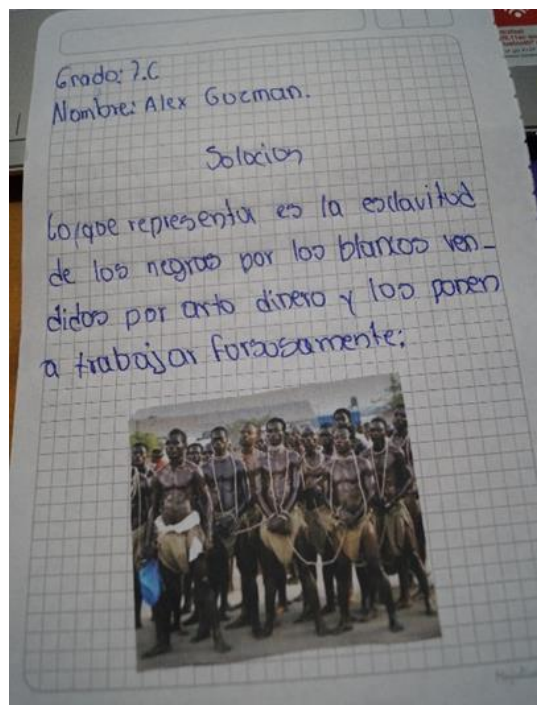 Grado: 7.C
Nombre: Alex Guzman.
Solocion
Lo que representa es la esclavitud
de los negros por los blancos ven-
didos por arto dinero y los ponen
a trabajar forsosamente: